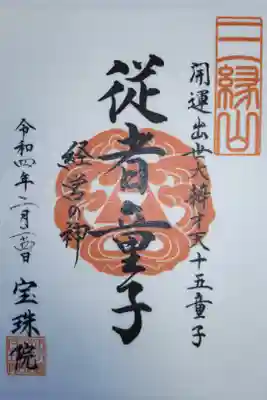 三縁山
開運出世大辨才天十五童子
従者童子
経営の神
令和四年二月 日
宝珠院